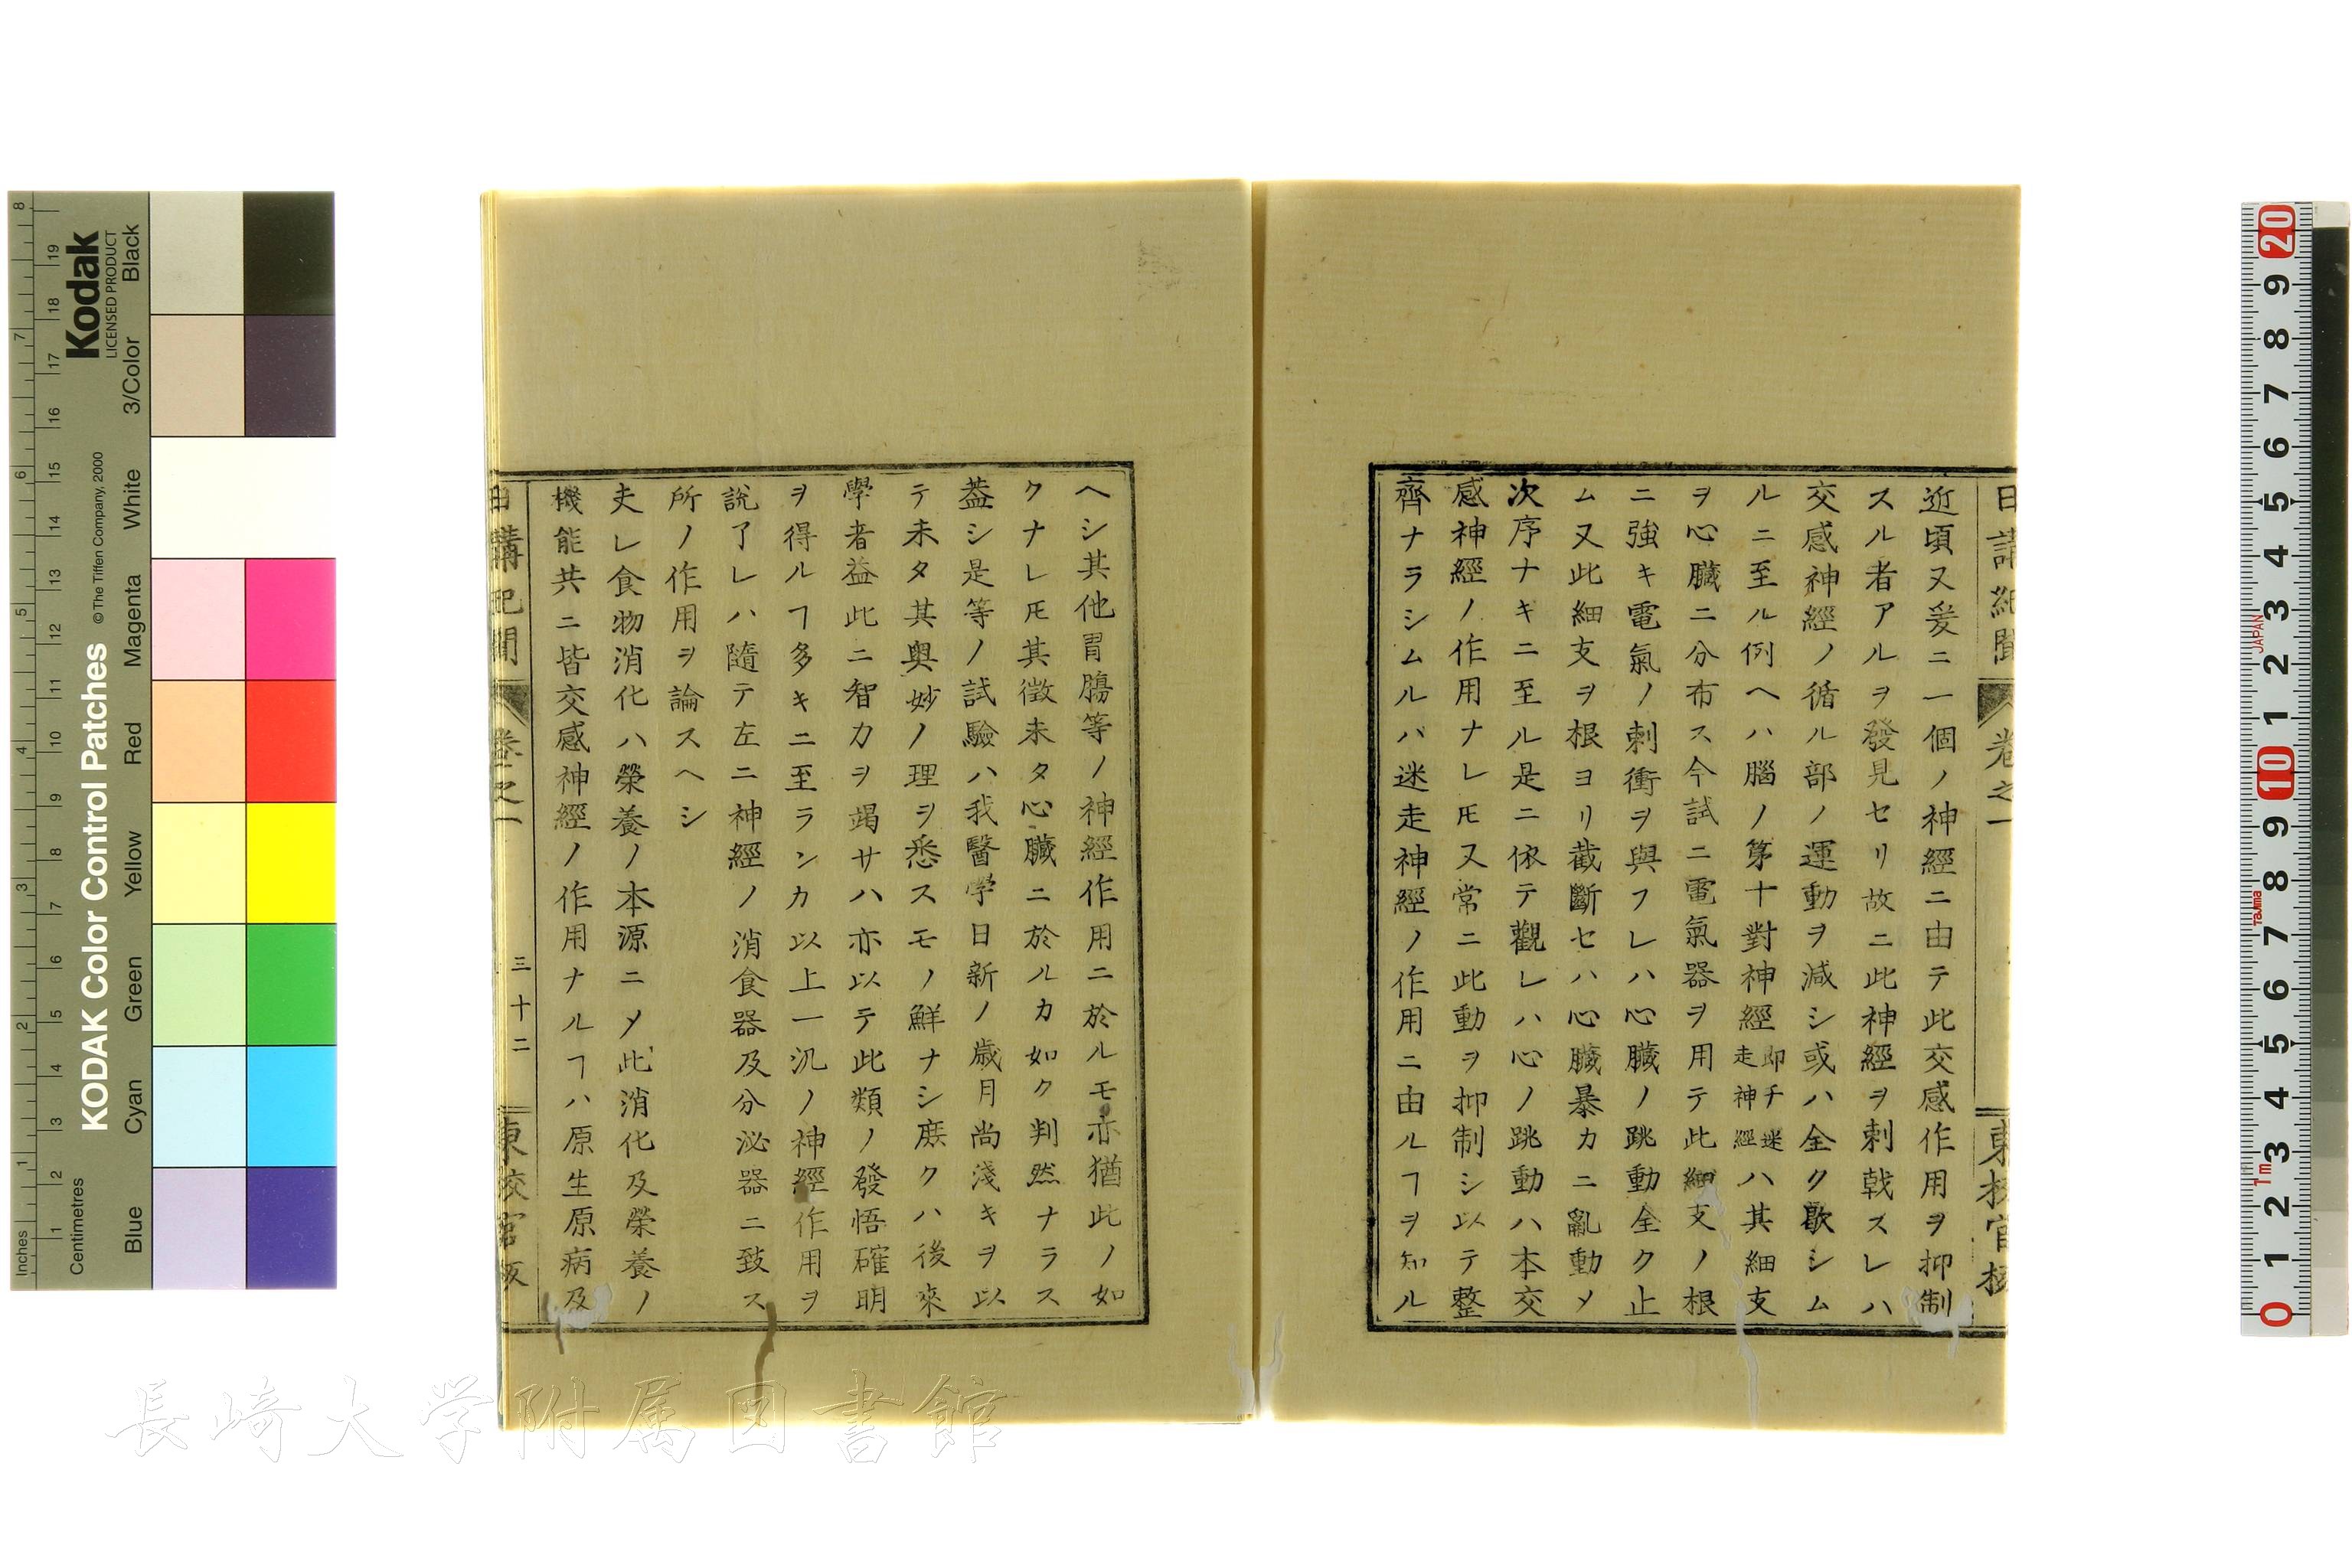 日講紀聞 卷之一 東校官板
近頃又爰ニ一個ノ神經ニ由テ此交感作用ヲ抑制
スル者アルヲ發見セリ故ニ此神經ヲ刺戟スレハ
交感神經ノ循ル部ノ運動ヲ減シ或ハ全ク歇シム
ルニ至ル例ヘハ腦ノ第十對神經即チ迷走神經ハ其細支
ヲ心臟ニ分布ス今試ニ電氣器ヲ用テ此細支ノ根
ニ強キ電氣ノ刺衝ヲ與フレハ心臟ノ跳動全ク止
ム又此細支ヲ根ヨリ截斷セハ心臟暴カニ亂動〆
次序ナキニ至ル是ニ依テ觀レハ心ノ跳動ハ本交
感神經ノ作用ナレ𪜈又常ニ此動ヲ抑制シ以テ整
齊ナラシムルハ迷走神經ノ作用ニ由ルヿヲ知ル
ヘシ其他胃膓等ノ神經作用ニ於ルモ亦猶此ノ如
クナレ𪜈其徵未タ心臟ニ於ルカ如ク判然ナラス
葢シ是等ノ試驗ハ我醫学日新ノ歲月尚淺キヲ以
テ未タ其奥妙ノ理ヲ悉スモノ鮮ナシ庶クハ後來
學者益此ニ智力ヲ竭サハ亦以テ此類ノ發悟確明
ヲ得ルヿ多キニ至ランカ以上一汎ノ神經作用ヲ
説了レハ隨テ左ニ神經ノ消食器及分泌器ニ致ス
所ノ作用ヲ論スヘシ
夫レ食物消化ハ榮養ノ本源ニ〆此消化及榮養ノ
機能共ニ皆交感神經ノ作用ナルヿハ原生原病及
日講記聞 卷之一 三十二 東校官板
Kodak
LICENSED PRODUCT
KODAK Color Control Patches
© The Tiffen Company, 2000
Inches 1 2 3 4 5 6 7 8
Centimetres 1 2 3 4 5 6 7 8 9 10 11 12 13 14 15 16 17 18 19
Blue Cyan Green Yellow Red Magenta White 3/Color Black
20 9 8 7 6 5 4 3 2 1 10 9 8 7 6 5 4 3 2 1 0
JAPAN
Tajima
1m
長崎大学附属図書館